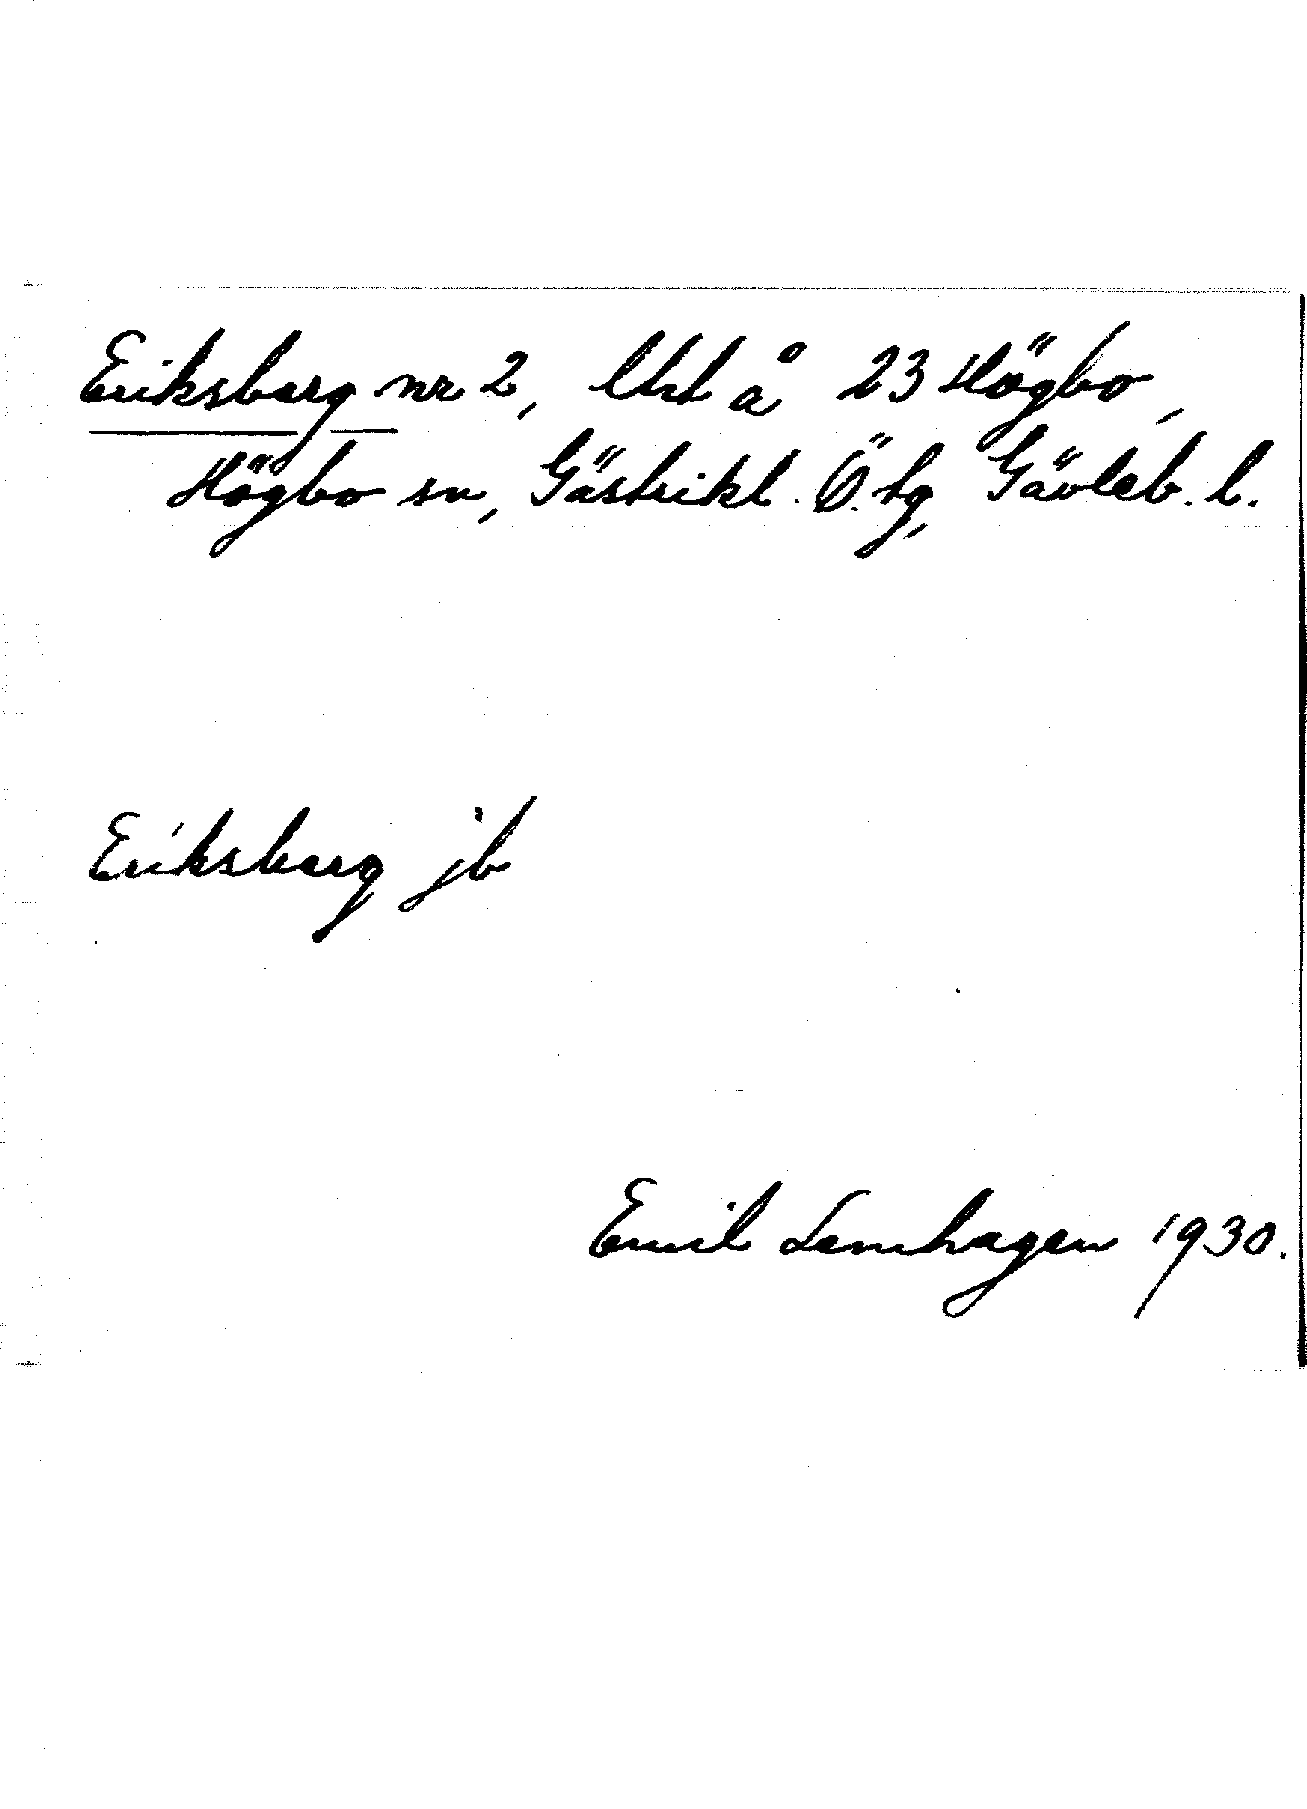 Eriksberg nr 2, lht å 23 Högbo,
Högbo sn, Gästrikl. Ö. tg, Gävleb. l.
Eriksberg jb
Emil Lennhagen 1930.